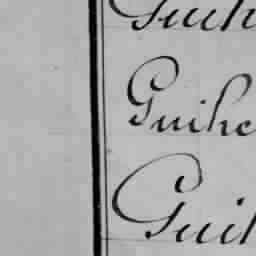 Guih
Guihe
Guih